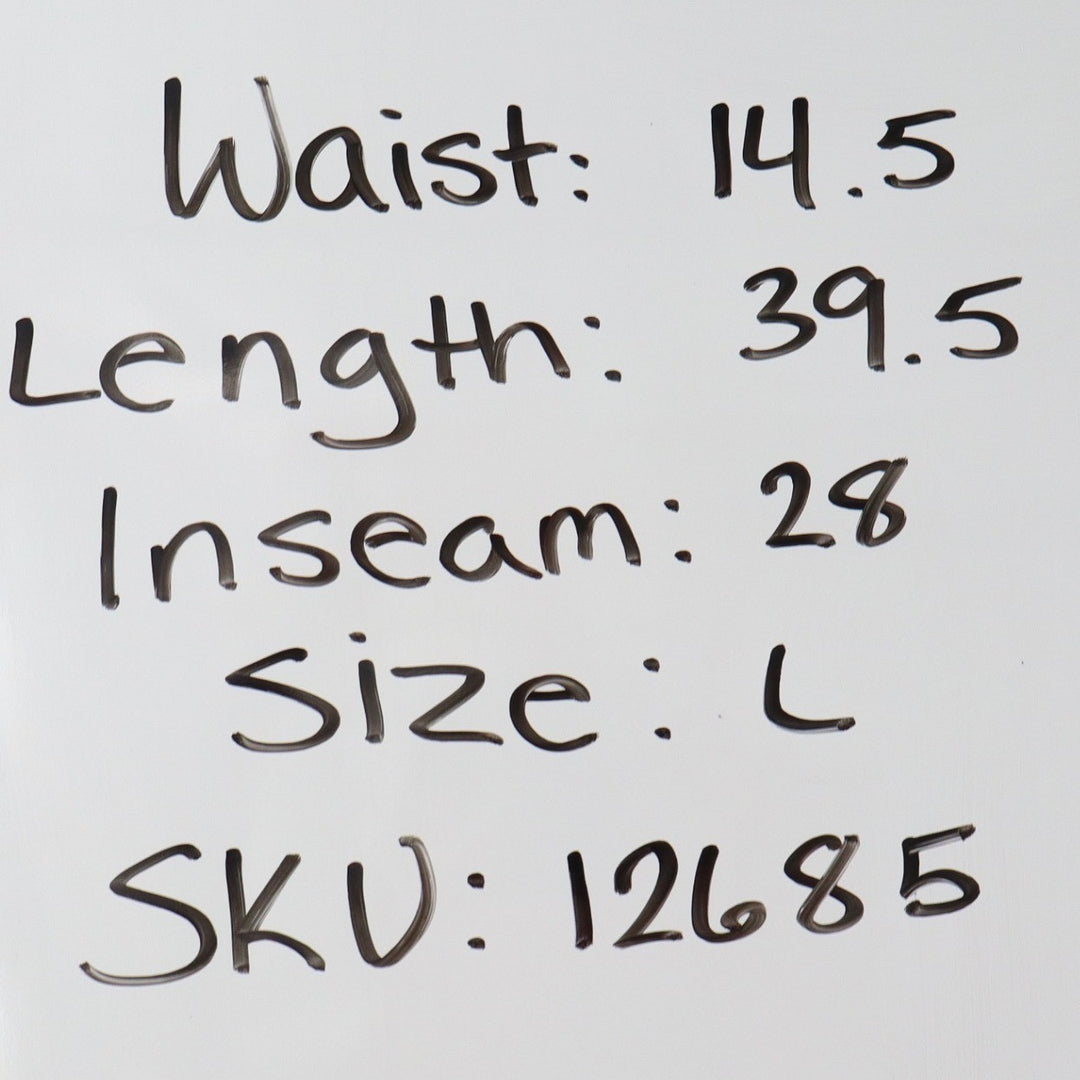 Waist: 14.5
Length: 39.5
Inseam: 28
Size: L
SKU: 12685